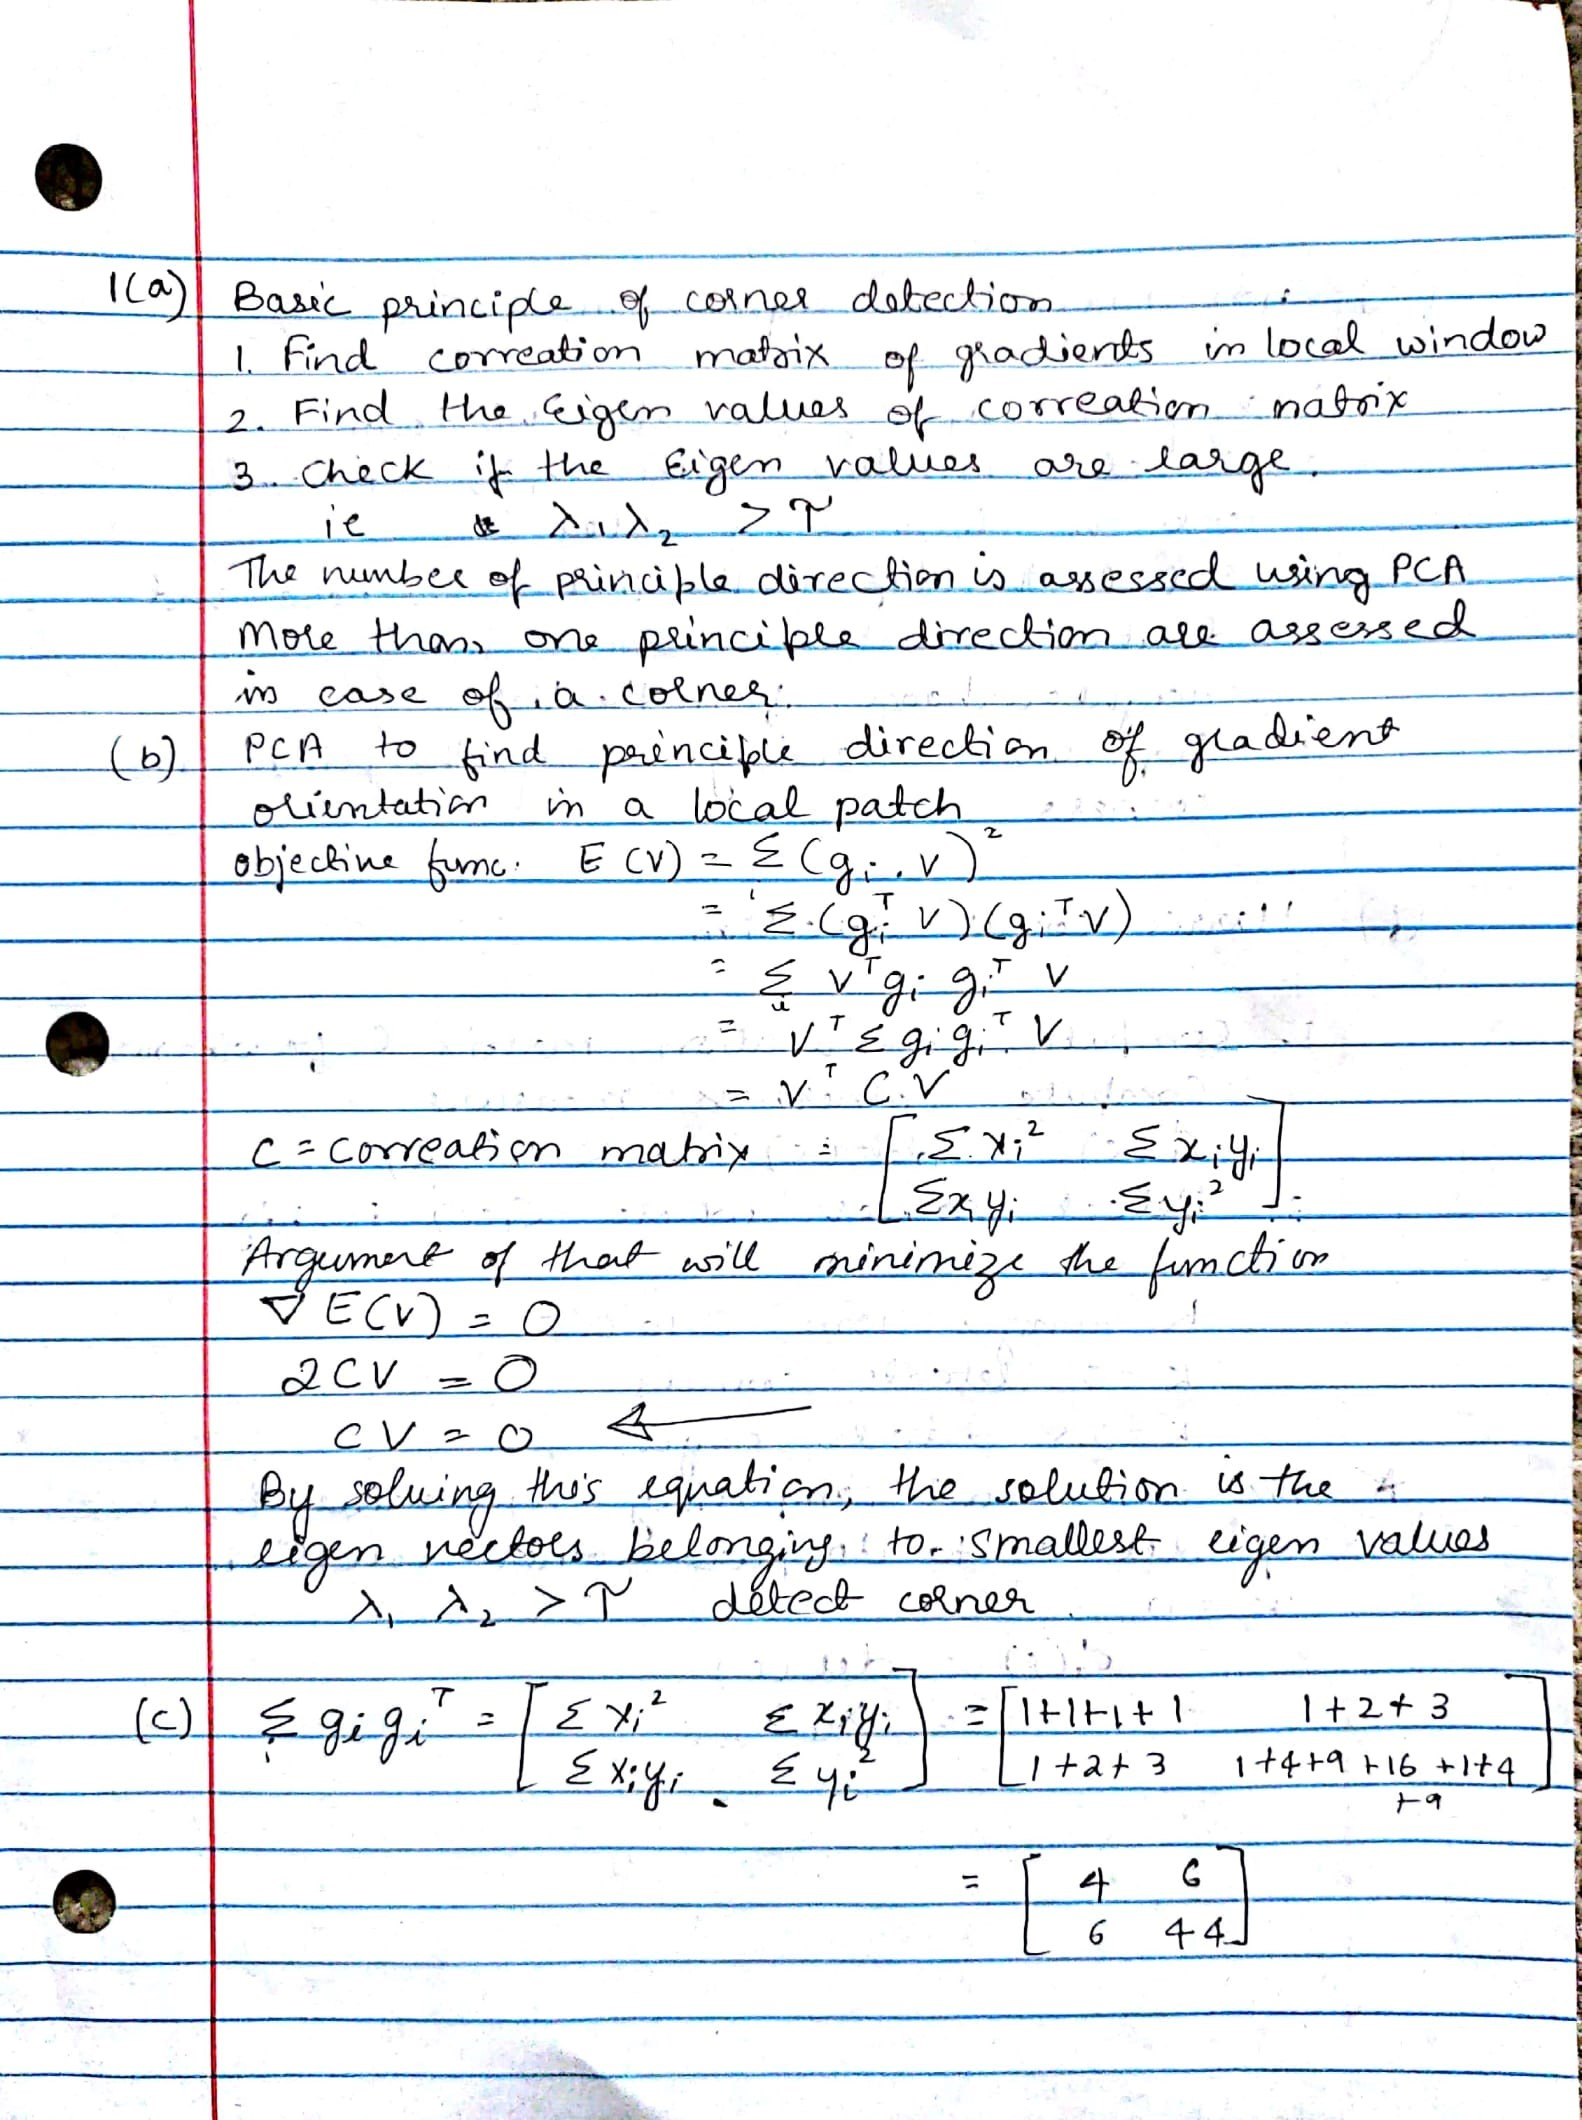 1(a) Basic principle of corner detection
1. Find correation matrix of gradients in local window
2. Find the Eigen values of correation natrix
3. Check if the Eigen values are large.
ie λ1 λ2 > τ
The number of principle direction is assessed using PCA
More than one principle direction are assessed
in case of a corner.
(b) PCA to find principle direction of gradient
orientation in a local patch
objective func. E(V) = Σ(gi . V)²
= Σ(giᵀ V)(giᵀ V)
= Σ Vᵀ gi giᵀ V
= Vᵀ Σ gi giᵀ V
= Vᵀ C.V
C = correation matrix = [ Σ xi² Σ xiyi
Σxiyi Σyi² ]
Argument of that will minimize the function
∇ E(V) = 0
2CV = 0
CV = 0 ←
By solving this equation, the solution is the
eigen vectors belonging to smallest eigen values
λ1 λ2 > τ detect corner
(c) Σ gi giᵀ = [ Σ xi² Σ xiyi ] = [ 1+1+1+1 1+2+3 ]
[ Σ xiyi Σ yi² ] [ 1+2+3 1+4+9+16+1+4
+9
= [ 4 6
6 44 ]